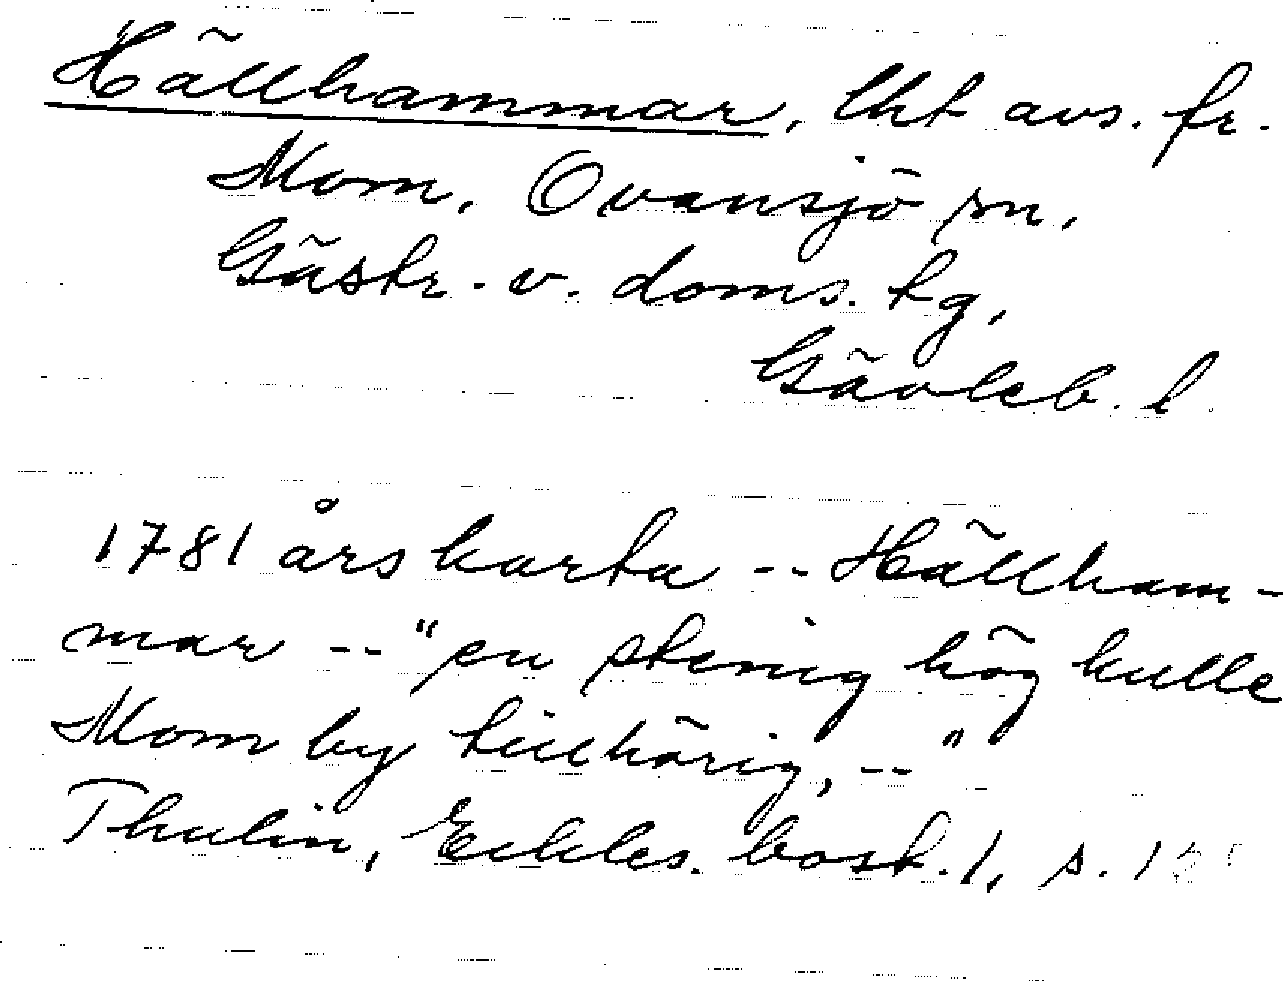 Hällhammar, lht avs. fr.
Mom, Ovansjö sn,
Gästr. v. doms. tg,
Gävleb. l.
1781 års karta -- Hällham-
mar -- "en stenig hög kulle
Mom by tillhörig, -- "
Thulin, Eckles. bost. 1, s.